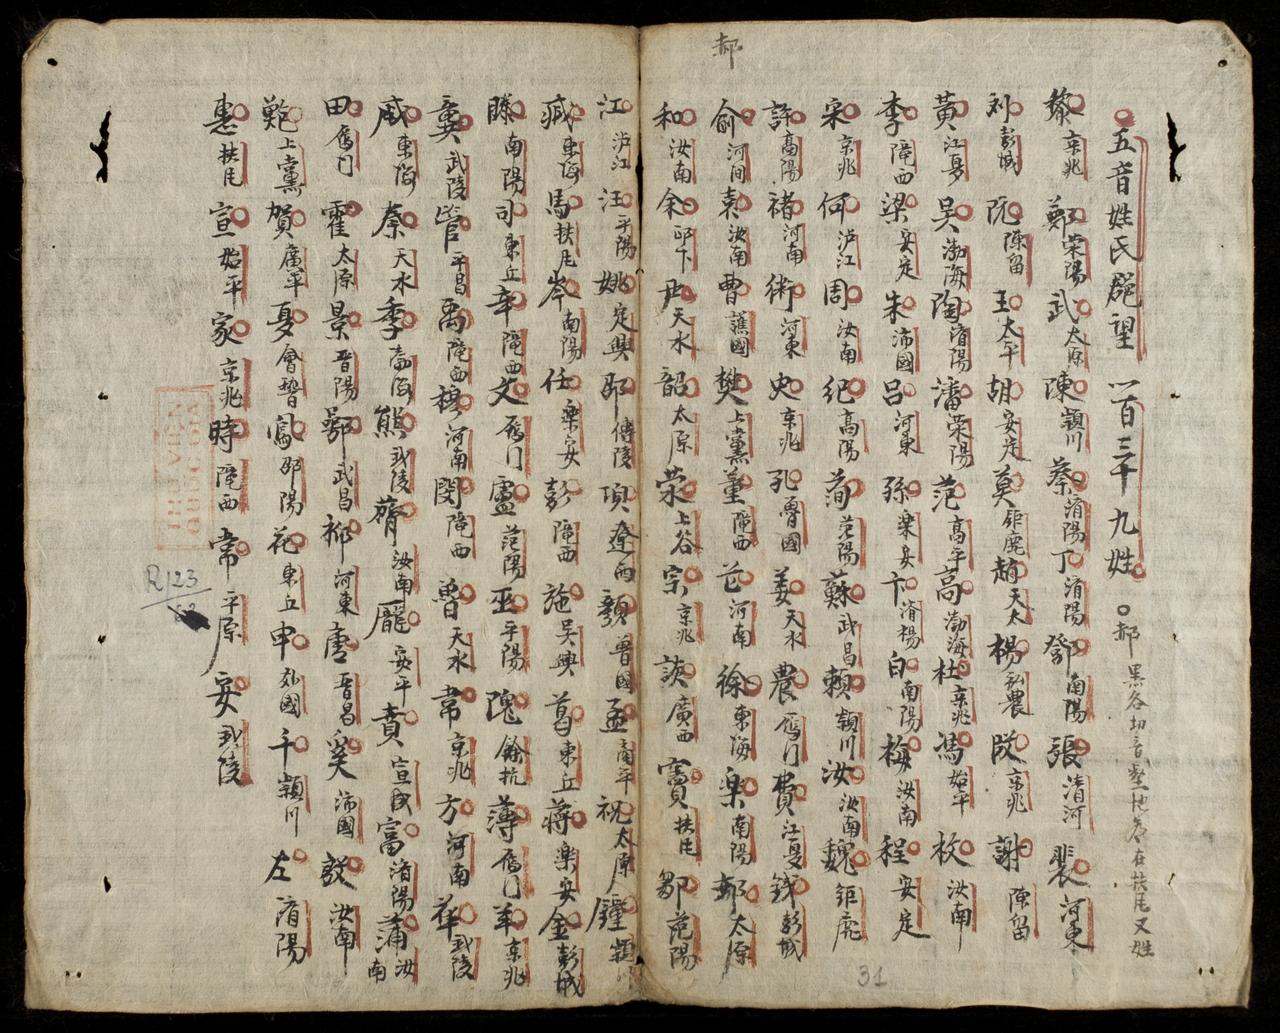 郝
五音姓氏郡望 一百三十九姓 郝 黑各切音壑地名在扶风又姓
黎 京兆 鄭 荣陽 武 太原 陳 潁川 蔡 済陽 丁 済陽 鄧 南陽 張 清河 裴 河東
刘 彭城 阮 陳留 王 太平 胡 安定 莫 钜鹿 趙 天太 楊 弘農 段 京兆 謝 陳留
黃 江夏 吴 渤海 陶 済陽 潘 荣陽 范 高平 高 渤海 杜 京兆 馮 始平 枚 汝南
李 隴西 梁 安定 朱 沛國 吕 河東 孫 楽安 卞 済楊 白 南陽 梅 汝南 程 安定
宋 京兆 何 泸江 周 汝南 紀 高陽 荀 范陽 蘇 武昌 賴 潁川 汝 汝南 魏 钜鹿
許 高陽 禇 河南 術 河東 史 京兆 孔 魯國 姜 天水 農 鴈门 費 江夏 銭 彭城
俞 河间 袁 汝南 曹 譙國 樊 上黨 董 隴西 芒 河南 徐 東海 楽 南陽 郝 太原
和 汝南 余 邱下 尹 天水 韶 太原 荣 上谷 宗 京兆 談 廣西 竇 扶风 鄒 范陽
江 泸江 汪 平陽 姚 定興 邵 傅陵 項 遼西 顏 魯國 孟 南平 祝 太原 鍾 潁川
臧 東海 馬 扶风 岑 南陽 任 楽安 彭 隴西 施 吴興 葛 東丘 蒋 楽安 金 彭城
滕 南陽 司 東丘 辛 隴西 文 鴈门 盧 范陽 巫 平陽 隗 餘抗 薄 鴈门 羊 京兆
龔 武陵 管 平昌 禹 隴西 穆 河南 閔 隴西 魯 天水 常 京兆 方 河南 華 武陵
戚 東海 秦 天水 季 渤海 熊 武陵 齊 汝南 龐 安平 賁 宣城 富 済陽 蒲 汝南
田 鴈门 霍 太原 景 晋陽 鄂 武昌 柳 河東 唐 晋昌 奚 沛國 發 汝南
鮑 上黨 賀 廣平 夏 會稽 寫 邵陽 花 東丘 申 外國 千 潁川 左 済陽
惠 扶风 宣 始平 家 京兆 時 隴西 常 平原 安 武陵
THƯ VIỆN
QUỐC GIA
R123
31